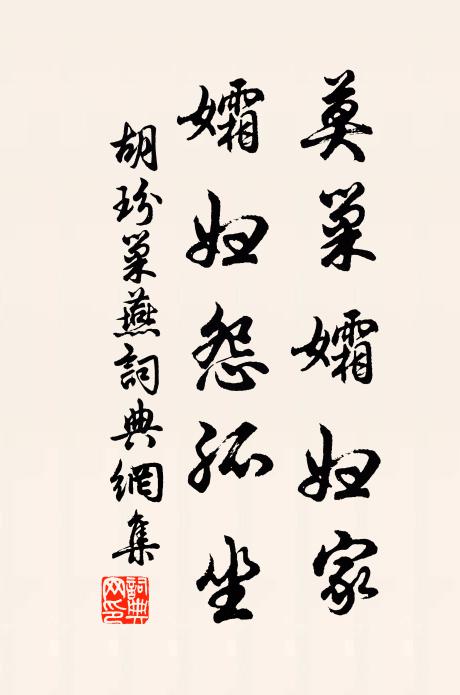 莫巢孀妇家
孀妇怨孤坐
胡玢巢燕詞典網集
詞典网印